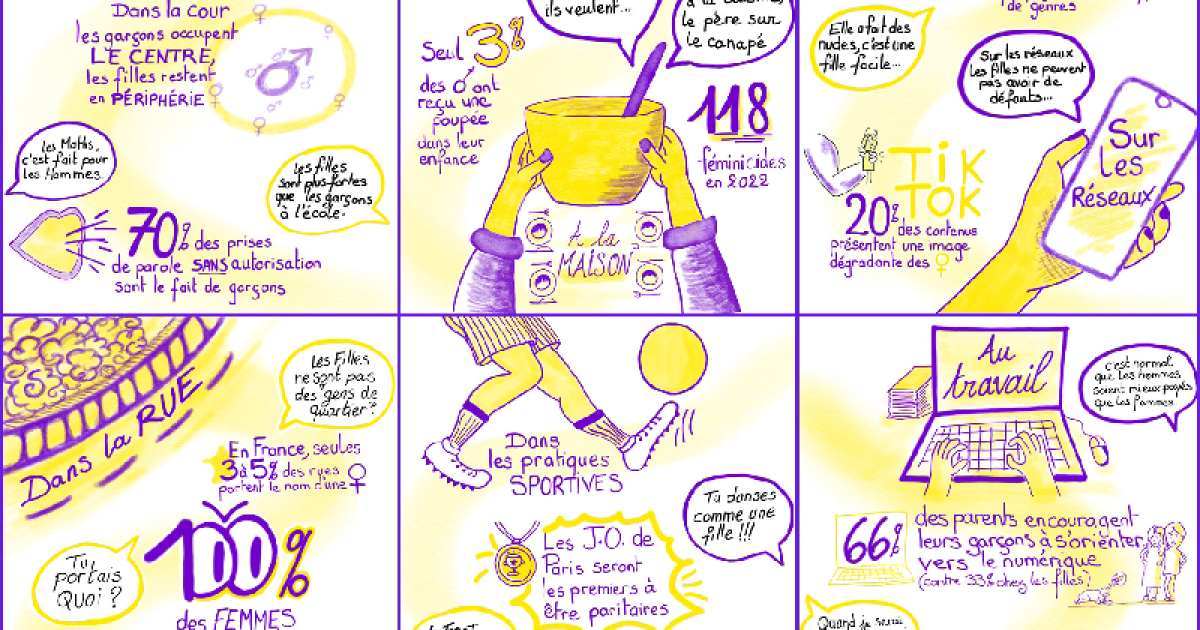 Dans la Cour
les garçons occupent
LE CENTRE,
les filles restent
en PÉRIPHÉRIE
Les Maths,
c'est fait pour
les Hommes.
Les filles
sont plus fortes
que les garçons
à l'école.
70% des prises
de parole SANS autorisation
sont le fait de garçons
ils veulent...
le père sur
le canapé
Seul 3%
des ♂ ont
reçu une
poupée
dans leur
enfance
118
féminicides
en 2022
A la
MAISON
de genres
Elle a fait des
nudes, c'est une
fille facile...
Sur les réseaux
les filles ne peuvent
pas avoir de
défauts...
TiK
TOK
20%
des contenus
présentent une image
dégradante des ♀
Sur
Les
Réseaux
Dans la RUE
Les Filles
ne sont pas
des "gens de
quartier"?
En France, seules
3 à 5% des rues
portent le nom d'une ♀
Tu
portais
Quoi ?
100%
des FEMMES
Dans
les pratiques
SPORTIVES
Tu danses
comme une
fille !!!
Les J.O. de
Paris seront
les premiers à
être paritaires
Au
travail
c'est normal
que les hommes
soient mieux payés
que les femmes
66%
des parents encouragent
leurs garçons à s'oriënter
vers le numérique
(contre 33% chez les filles)
Quand je serai